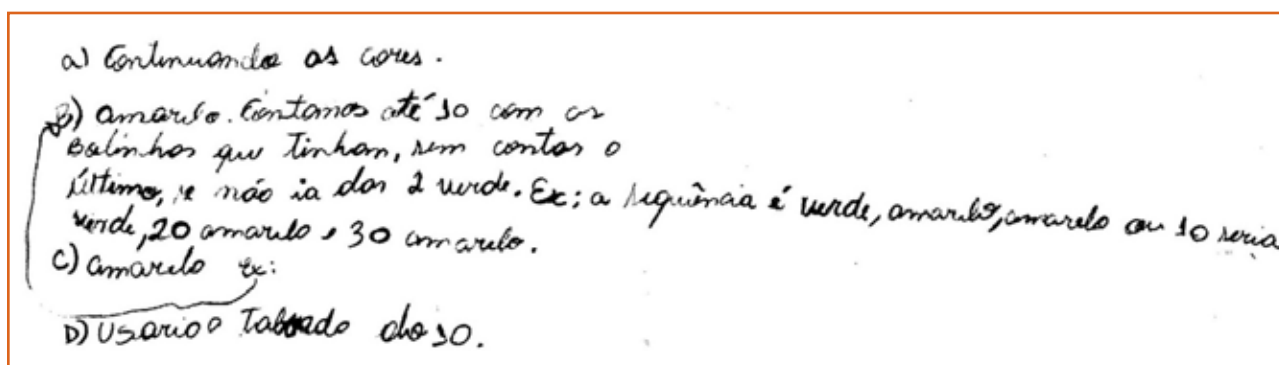 a) Continuando as cores.
B) amarelo. Contamos até 10 com as
Bolinhas que tinham, sem contar o
último, se não ia dar 2 verde. Ex: a sequência é verde, amarelo, amarelo ou 10 seria
verde, 20 amarelo e 30 amarelo.
C) amarelo Ex:
D) Usario a Taboada do 10.